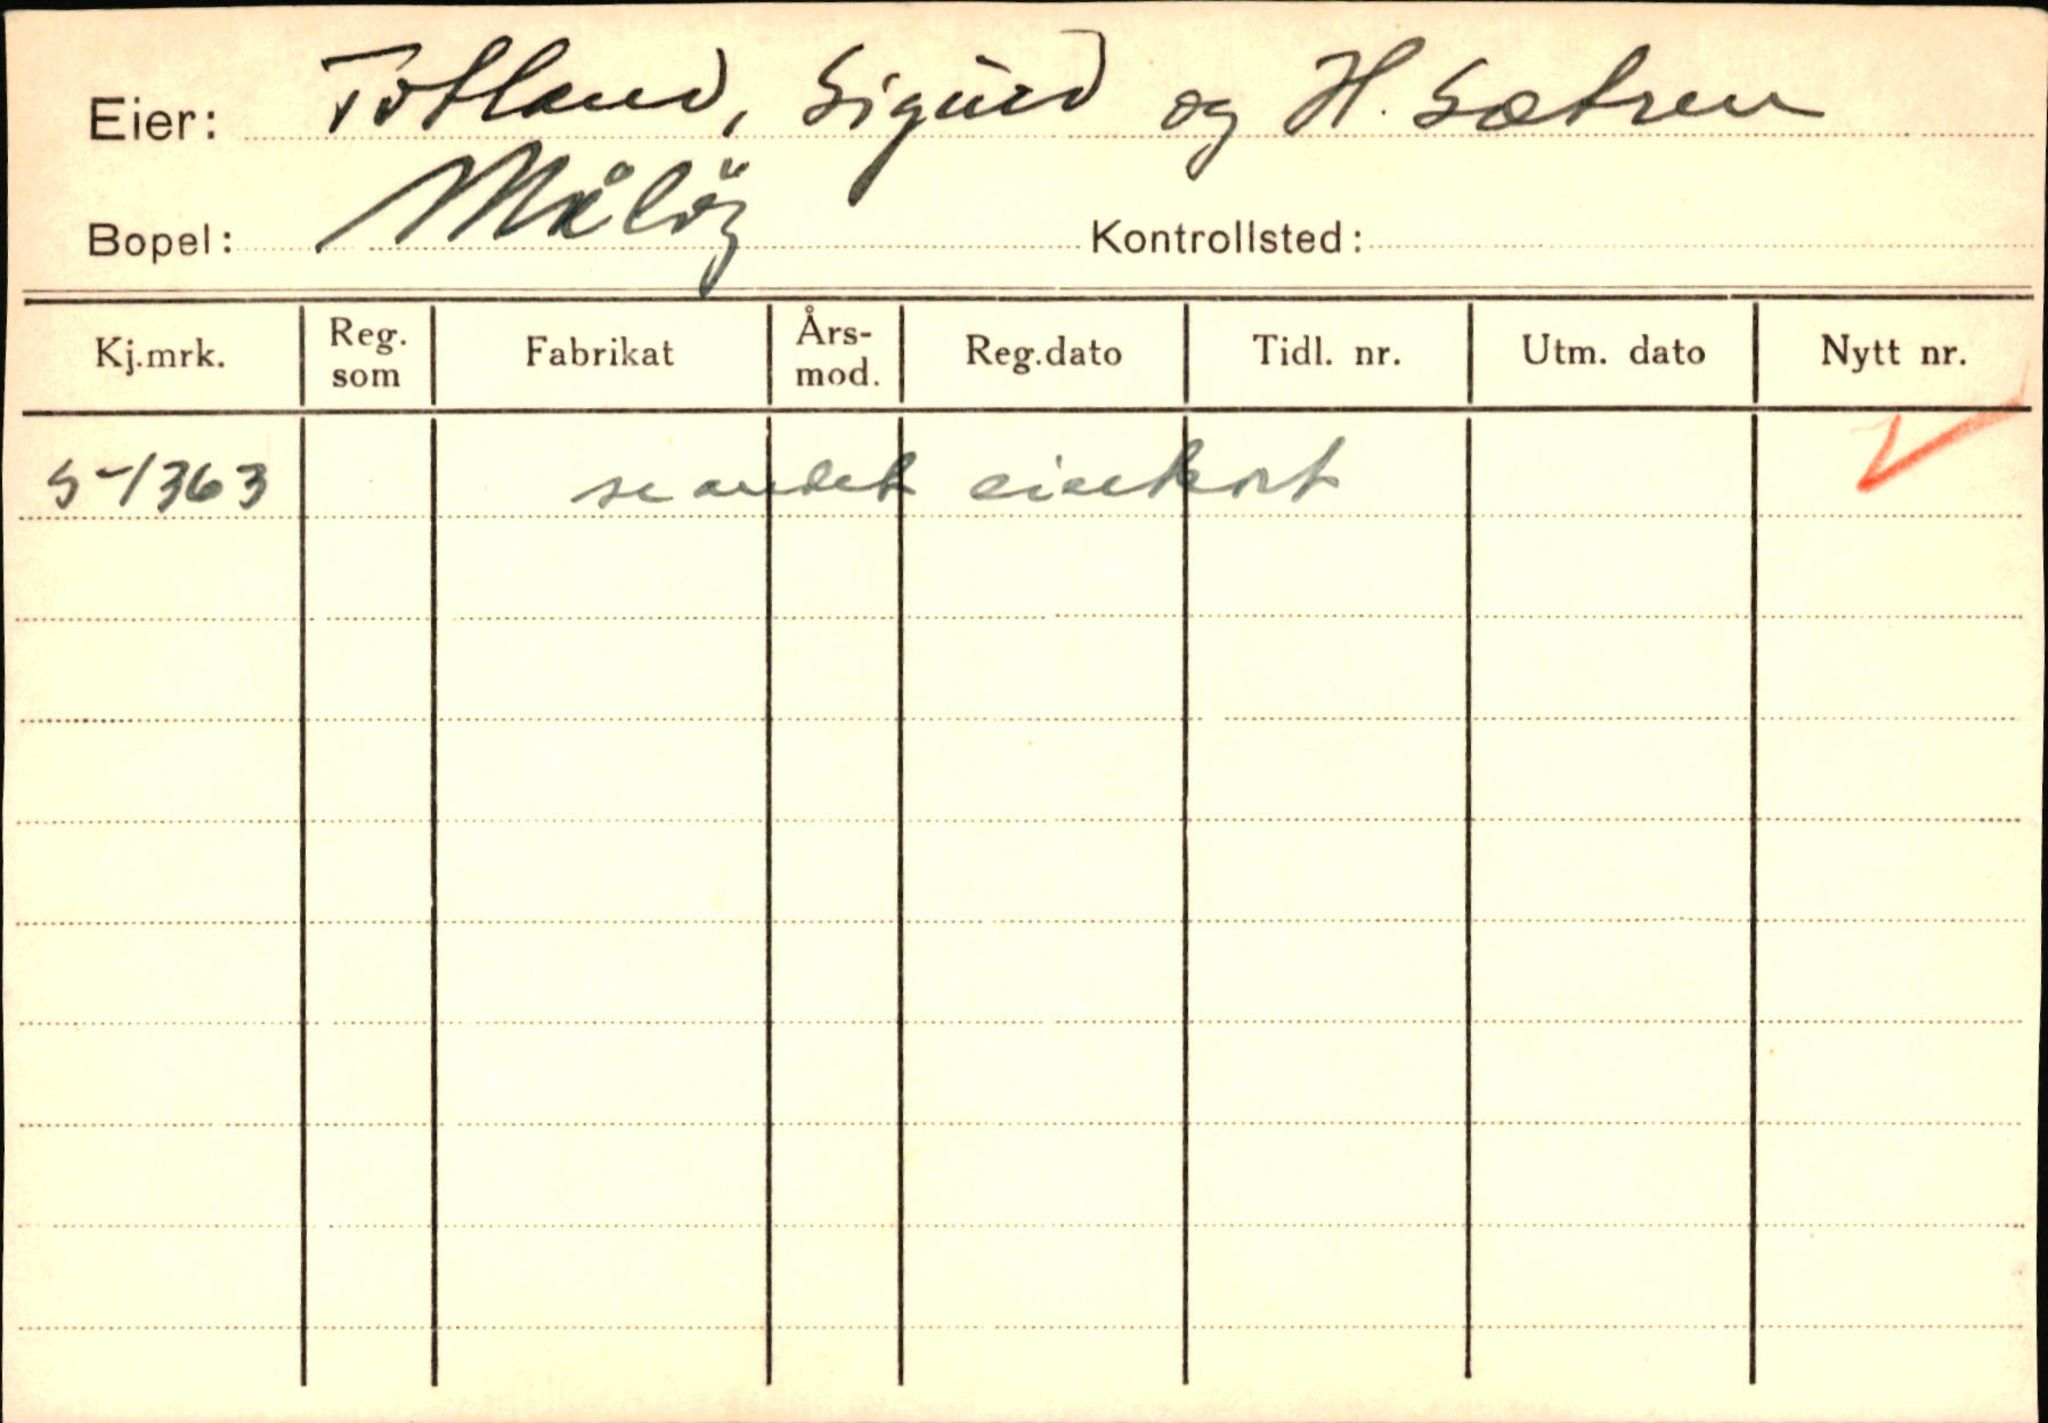 Eier: Totland, Sigurd og H. Sætren
Bopel: Målöy Kontrollsted:
Kj.mrk. Reg. som Fabrikat Års-mod. Reg.dato Tidl. nr. Utm. dato Nytt nr.
S-1363 se andet eierkort